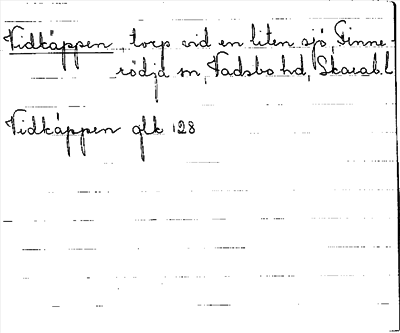 Vidkäppen, torp vid en liten sjö, Finne-
rödja sn, Vadsbo hd, Skarab.l
Vidkäppen glk 128